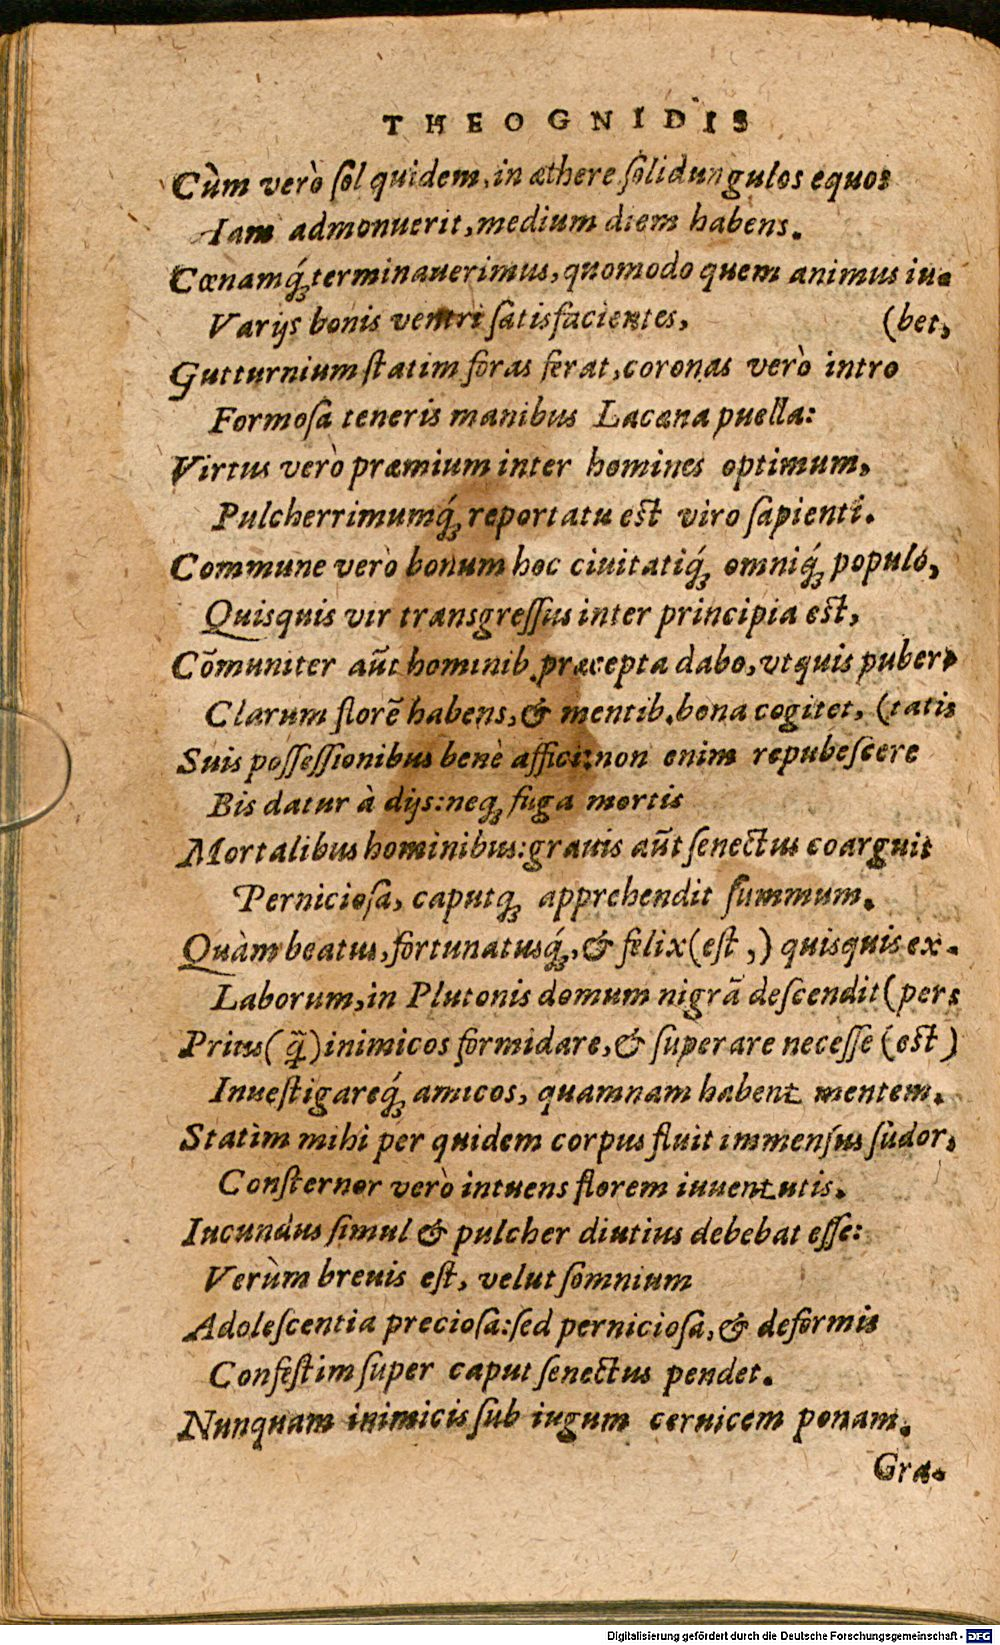 THEOGNIDIS
Cùm verò ſol quidem, in æthere ſolidungulos equos
Iam admonuerit, medium diem habens.
Cœnamq́; terminauerimus, quomodo quem animus iu-
Varijs bonis ventri ſatisfacientes, (bet,
Gutturnium ſtatim foras ferat, coronas verò intro
Formoſa teneris manibus Lacæna puella:
Virtus verò præmium inter homines optimum,
Pulcherrimumq́; reportatu est viro ſapienti.
Commune verò bonum hoc ciuitatiq́; omniq́; populo,
Quisquis vir transgreſſus inter principia est,
Cōmuniter aũt hominib. præcepta dabo, vt quis puber-
Clarum florẽ habens, & mentib. bona cogitet, (tatis
Suis poſſeſſionibus benè affici: non enim repubeſcere
Bis datur à dijs: neq; fuga mortis
Mortalibus hominibus: grauis aũt ſenectus coarguit
Pernicioſa, caputq; apprehendit ſummum.
Quàm beatus, fortunatusq́;, & felix (eſt,) quisquis ex-
Laborum, in Plutonis domum nigrã deſcendit (pers
Prius (q̃) inimicos formidare, & ſuperare neceſſe (est)
Inueſtigareq́; amicos, quamnam habent mentem.
Statim mihi per quidem corpus fluit immenſus ſudor,
Conſternor verò intuens florem iuuentutis.
Iucundus ſimul & pulcher diutius debebat eſſe:
Verùm breuis eſt, velut ſomnium
Adoleſcentia precioſa: ſed pernicioſa, & deformis
Confeſtim ſuper caput ſenectus pendet.
Nunquam inimicis ſub iugum ceruicem ponam.
Gra-
Digitalisierung gefördert durch die Deutsche Forschungsgemeinschaft - DFG